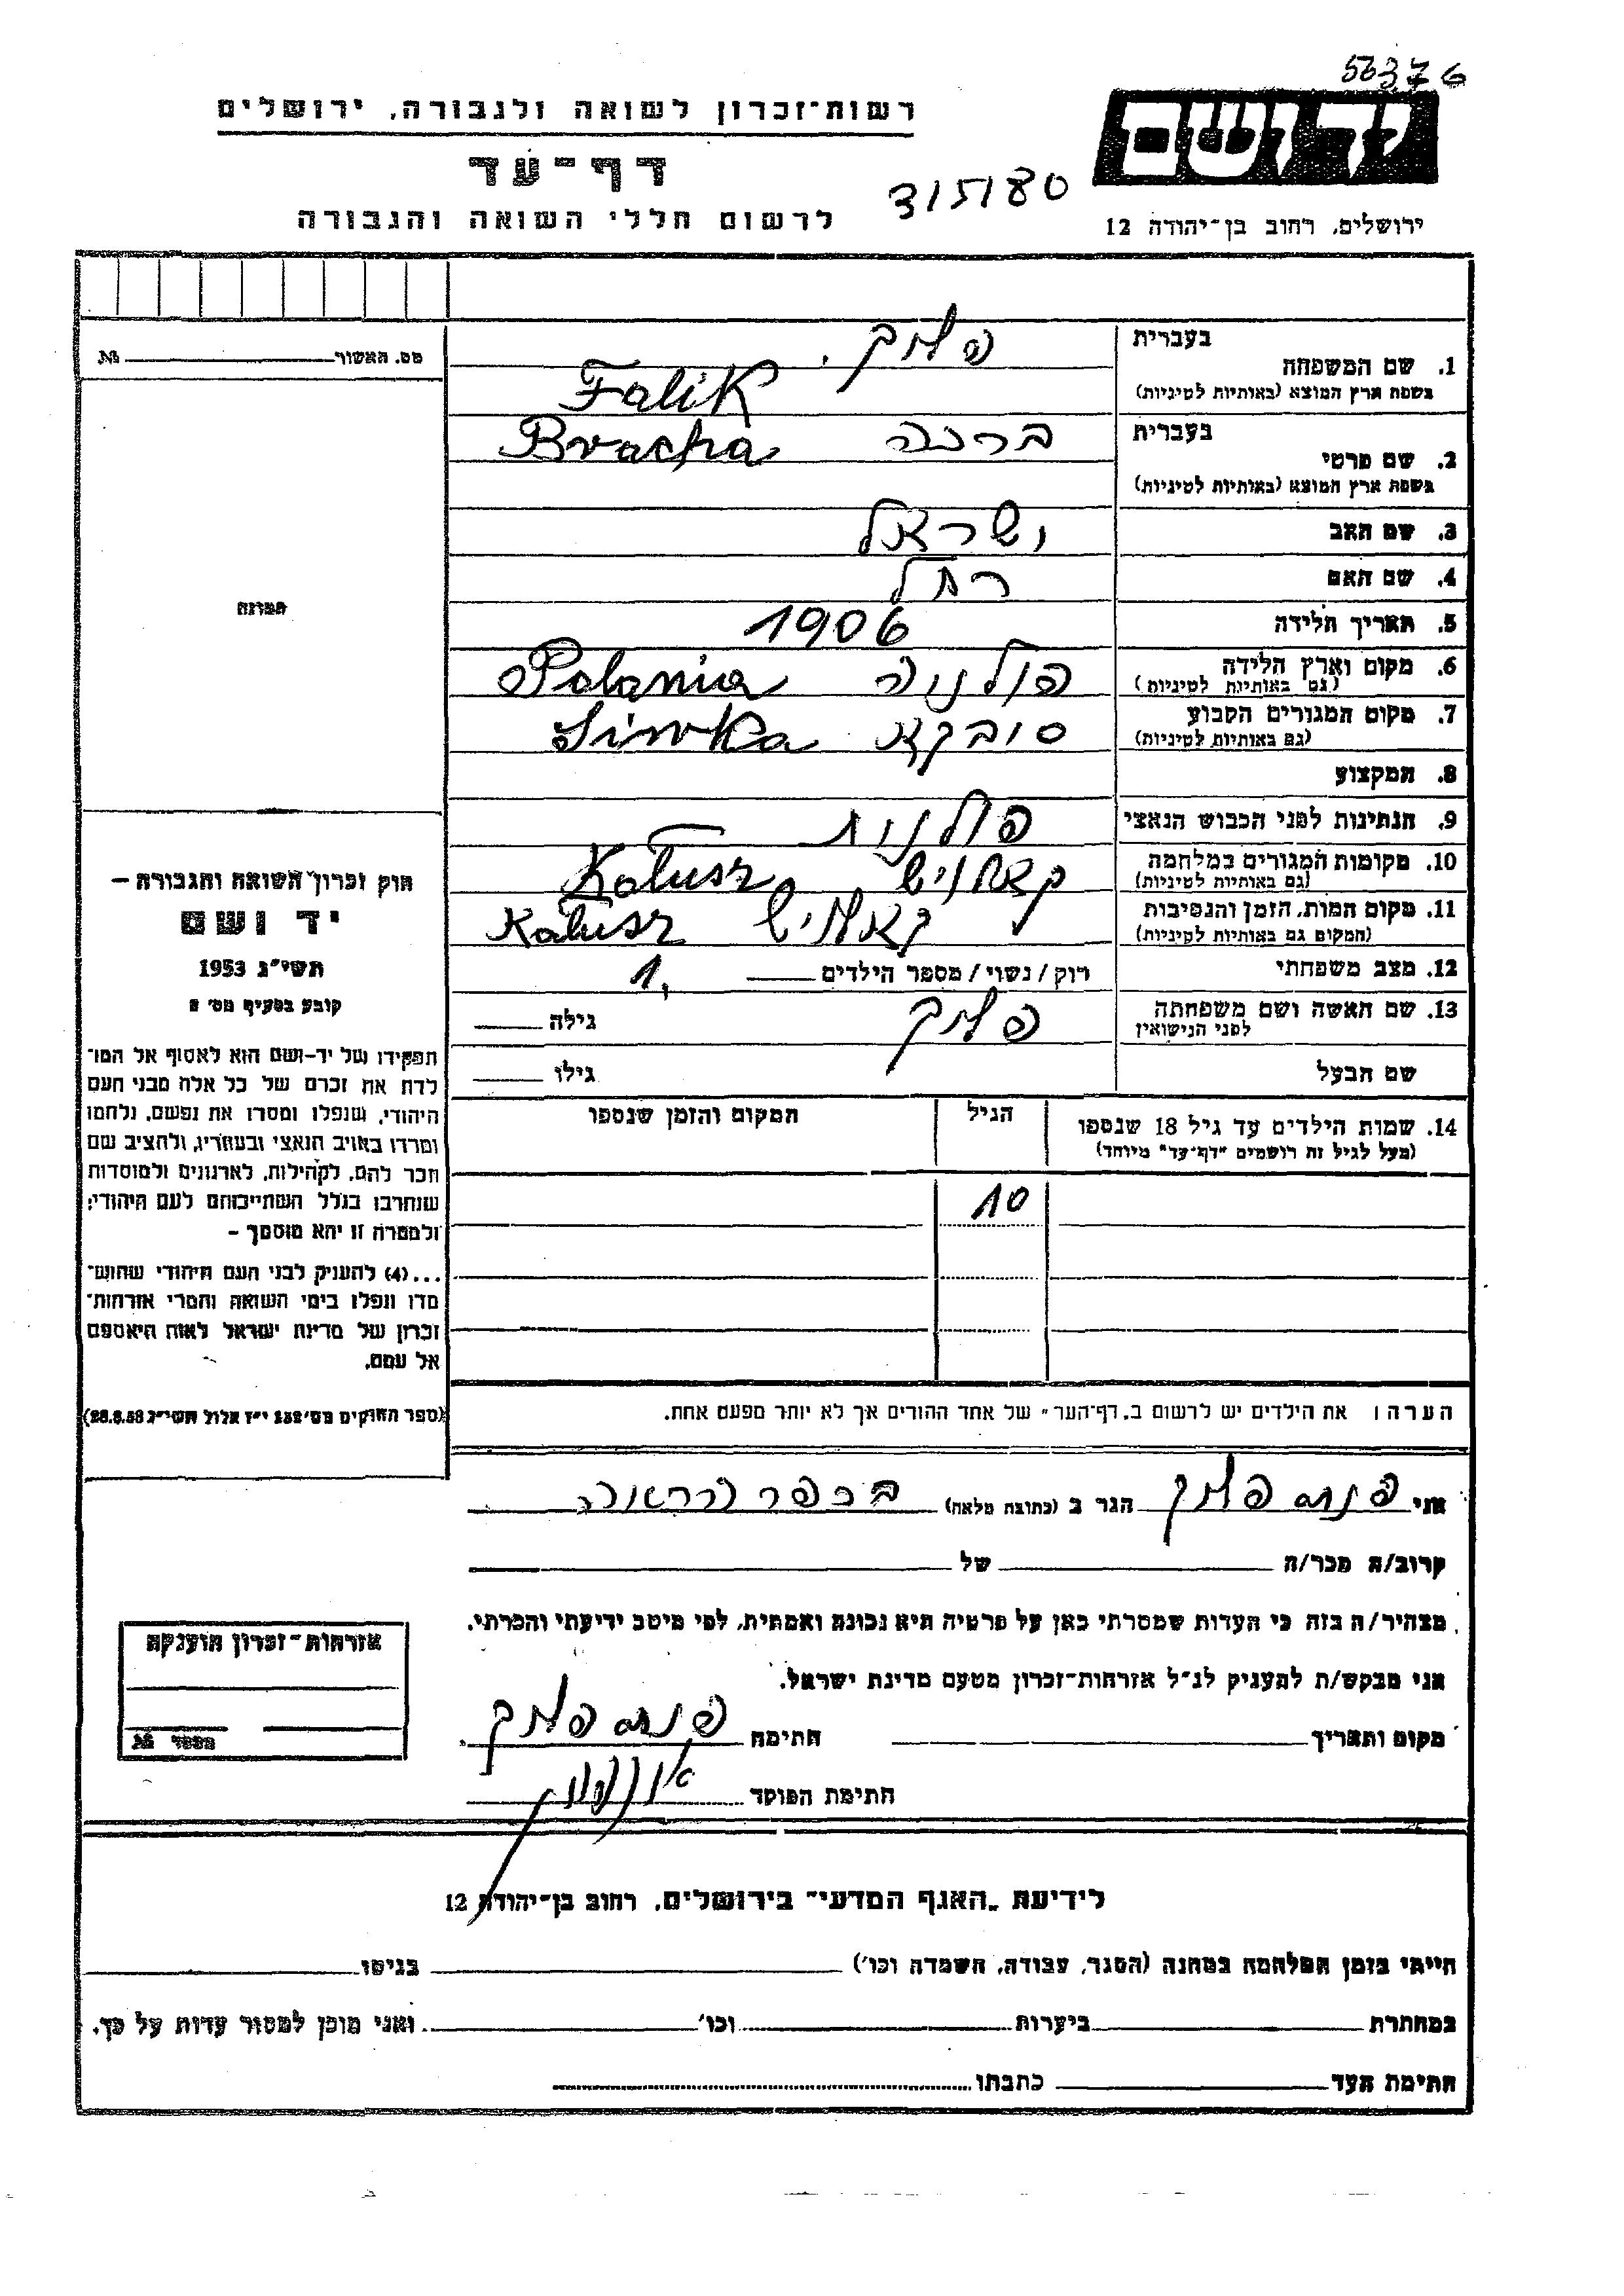 56376
רשות־זכרון לשואה ולגבורה, ירושלים
ידושם
דף־עד
315180
לרשום חללי השואה והגבורה
ירושלים, רחוב בן־יהודה 12
מס. האשור №
בעברית פליק
1. שם המשפחה
בשפת ארץ המוצא (באותיות לטיניות) Falik
בעברית ברכה Bracha
2. שם פרטי
בשפת ארץ המוצא (באותיות לטיניות)
3. שם האב ישראל
4. שם האם רחל
5. תאריך הלידה 1906
6. מקום וארץ הלידה פולניה Polania
(גם באותיות לטיניות)
7. מקום המגורים הקבוע סיבקא Siwka
(גם באותיות לטיניות)
8. המקצוע
9. הנתינות לפני הכבוש הנאצי פולנית
10. מקומות המגורים במלחמה Kałusz
(גם באותיות לטיניות)
11. מקום המות, הזמן והנסיבות Kalusz
(המקום גם באותיות לטיניות)
12. מצב משפחתי רוק / נשוי / מספר הילדים 1
13. שם האשה ושם משפחתה פליק גילה
לפני הנישואין
שם הבעל גילו
14. שמות הילדים עד גיל 18 שנספו הגיל המקום והזמן שנספו
(מעל לגיל זה רושמים "דף־עד" מיוחד)
10
הערה: את הילדים יש לרשום ב„דף־העד" של אחד ההורים אך לא יותר מפעם אחת.
תמונה
חוק זכרון השואה והגבורה —
יד ושם
תשי"ג 1953
קובע בסעיף מס' 2
תפקידו של יד-ושם הוא לאסוף אל המו־
לדת את זכרם של כל אלה מבני העם
היהודי, שנפלו ומסרו את נפשם, נלחמו
ומרדו באויב הנאצי ובעוזריו, ולהציב שם
וזכר להם, לקהילות, לארגונים ולמוסדות
שנחרבו בגלל השתייכותם לעם היהודי;
ולמטרה זו יהא מוסמך —
...(4) להעניק לבני העם היהודי שהוש־
מדו ונפלו בימי השואה והמרי אזרחות־
זכרון של מדינת ישראל לאות היאספם
אל עמם.
(ספר החוקים מס' 132 י"ז אלול תשי"ג 28.8.53)
אני פנחס פליק הגר ב (כתובת מלאה) בכפר
קרוב/ה מכר/ה של
מצהיר/ה בזה כי העדות שמסרתי כאן על פרטיה היא נכונה ואמתית, לפי מיטב ידיעתי והכרתי.
אני מבקש/ת להעניק לנ"ל אזרחות־זכרון מטעם מדינת ישראל.
מקום ותאריך חתימה פנחס פליק
חתימת הפוקד
אזרחות־זכרון הוענקה
מספר №
לידיעת „האגף המדעי" בירושלים, רחוב בן־יהודה 12
הייתי בזמן המלחמה במחנה (הסגר, עבודה, השמדה וכו') בגיטו
במחתרת ביערות וכו' ואני מוכן למסור עדות על כך.
חתימת העד כתבתו